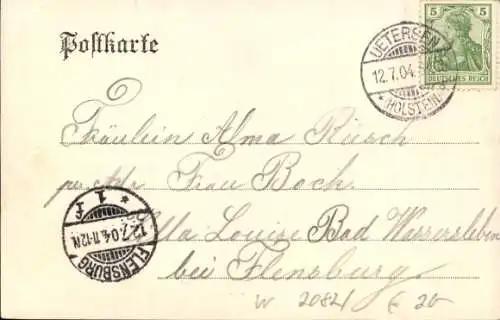 Postkarte
5 5
DEUTSCHES REICH
UETERSEN
12.7.04.
* HOLSTEIN *
Fräulein Alma Rüsch
per Adr. Frau Boch.
Villa Louise Bad Wassersleben
bei Flensburg
* 1 f
12.7.04.11-12N.
FLENSBURG
W 20821 € 20